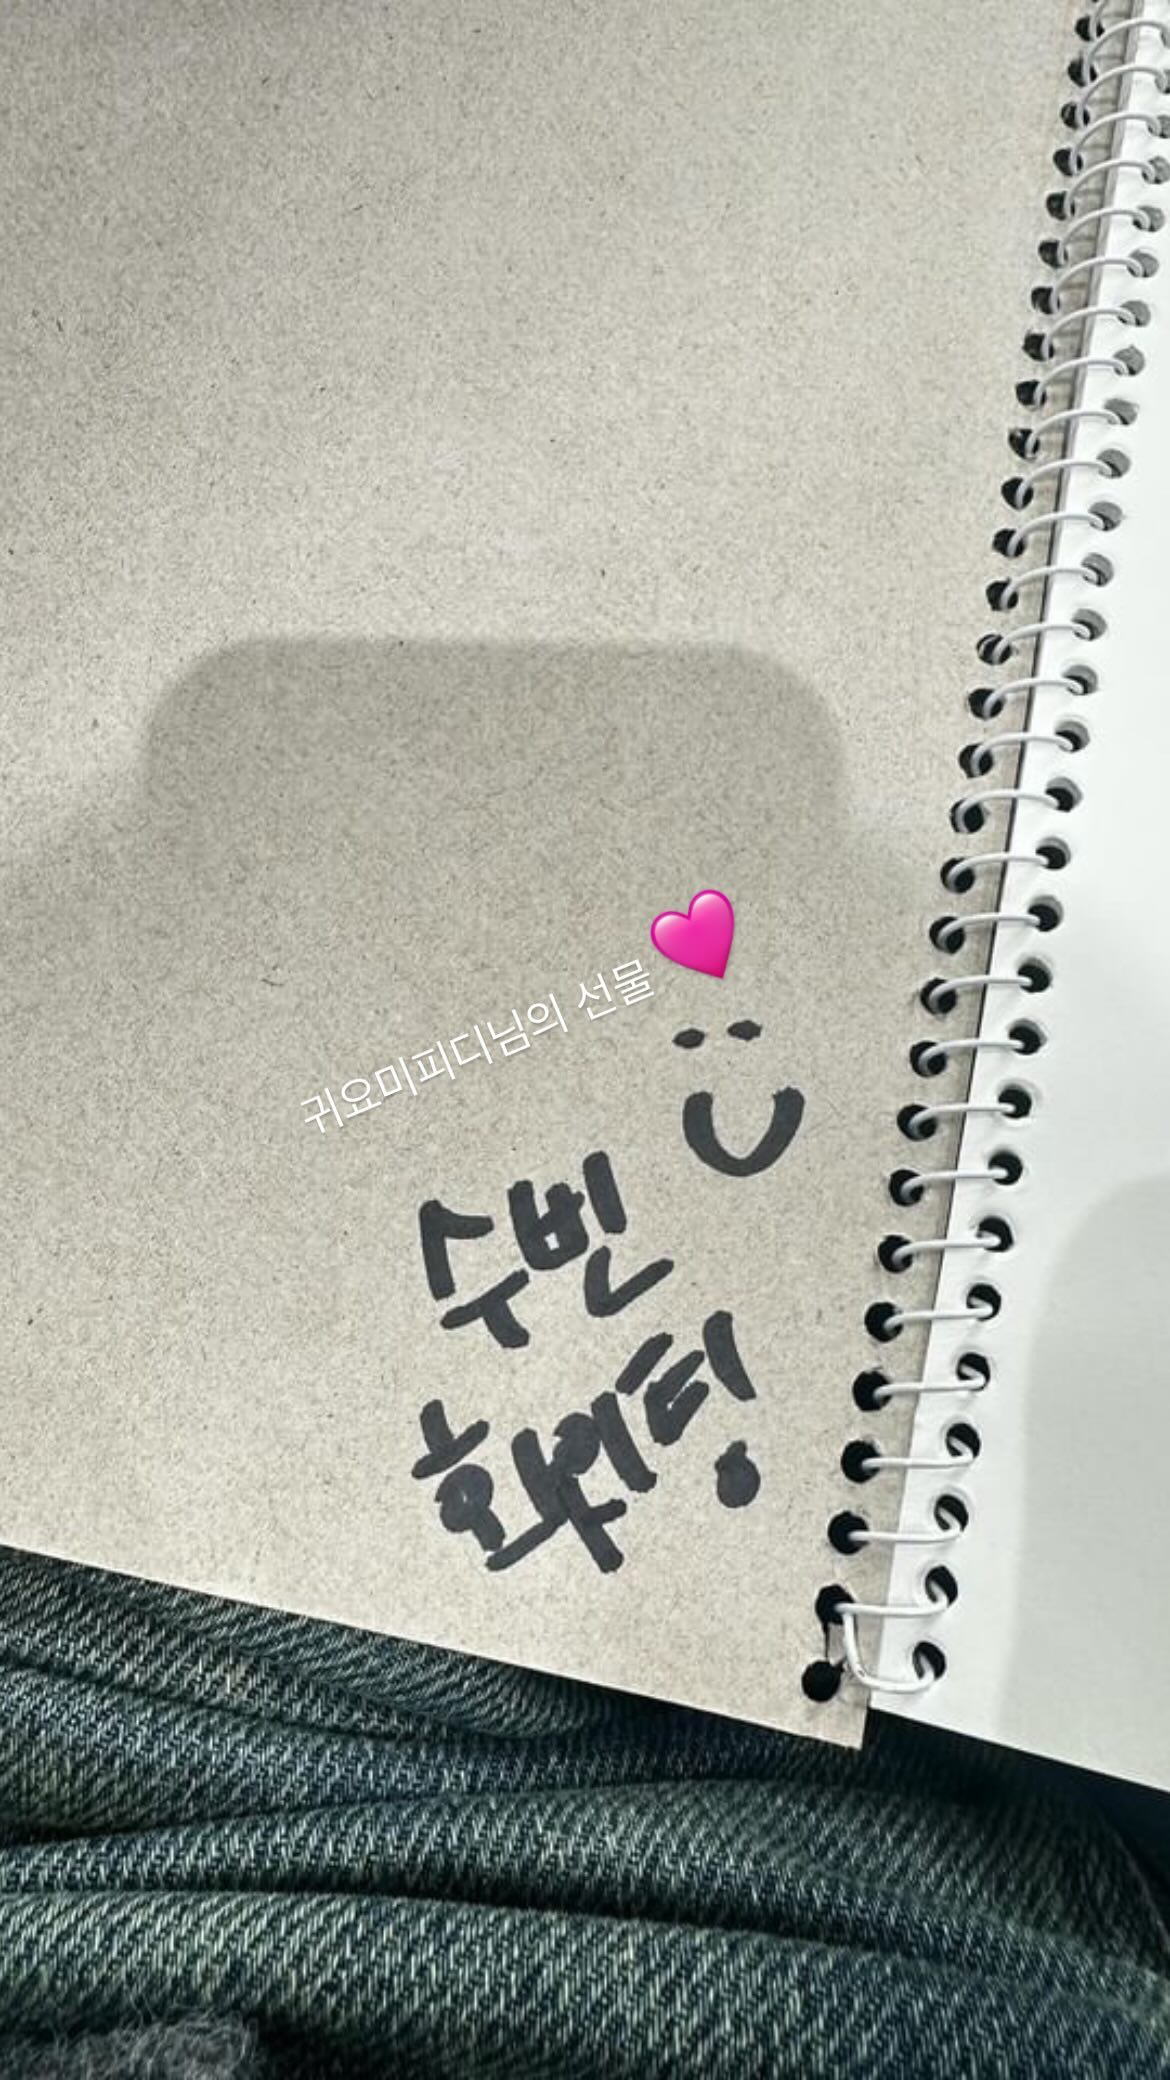 귀요미피디님의 선물🩷
수빈
화이팅!